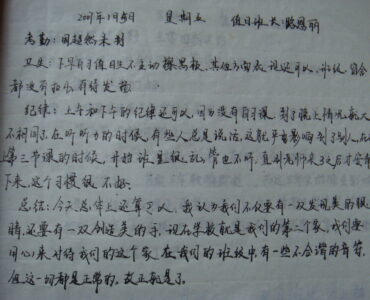 2007年1月5日 星期五 值日班长:骆恩丽
考勤:周超然未到
卫生:下早自习值日生不主动擦黑板,其他方面应说还可以,小纸,窗台
都没有扫
纪律:上午和下午的纪律还可以,因为没有自习课,到了晚上情况就大
不相同了,在听听力的时候,有些人总是说话,这就严重影响到了别人,在
第三节课的时候,开始班里很乱,管也不听,直到老师来了之后才安静
下来,这个习惯很不好。
总结:今天总体上还算可以,我认为我们不仅要有一双发现美的眼
睛,还要有一双创造美的手,现在学校就是我们的第二个家,我们要
同心来对待我们的这个家,在我们的班级中有一些不合谐的音符,
但这一切都是正常的,改正就是了。